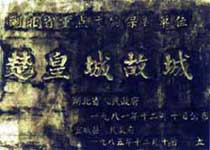 湖北省重点文物保护单位
楚皇城故城
湖北省人民政府
一九八一年十二月十日公布
宜城县人民政府
一九八五年十二月十日 立